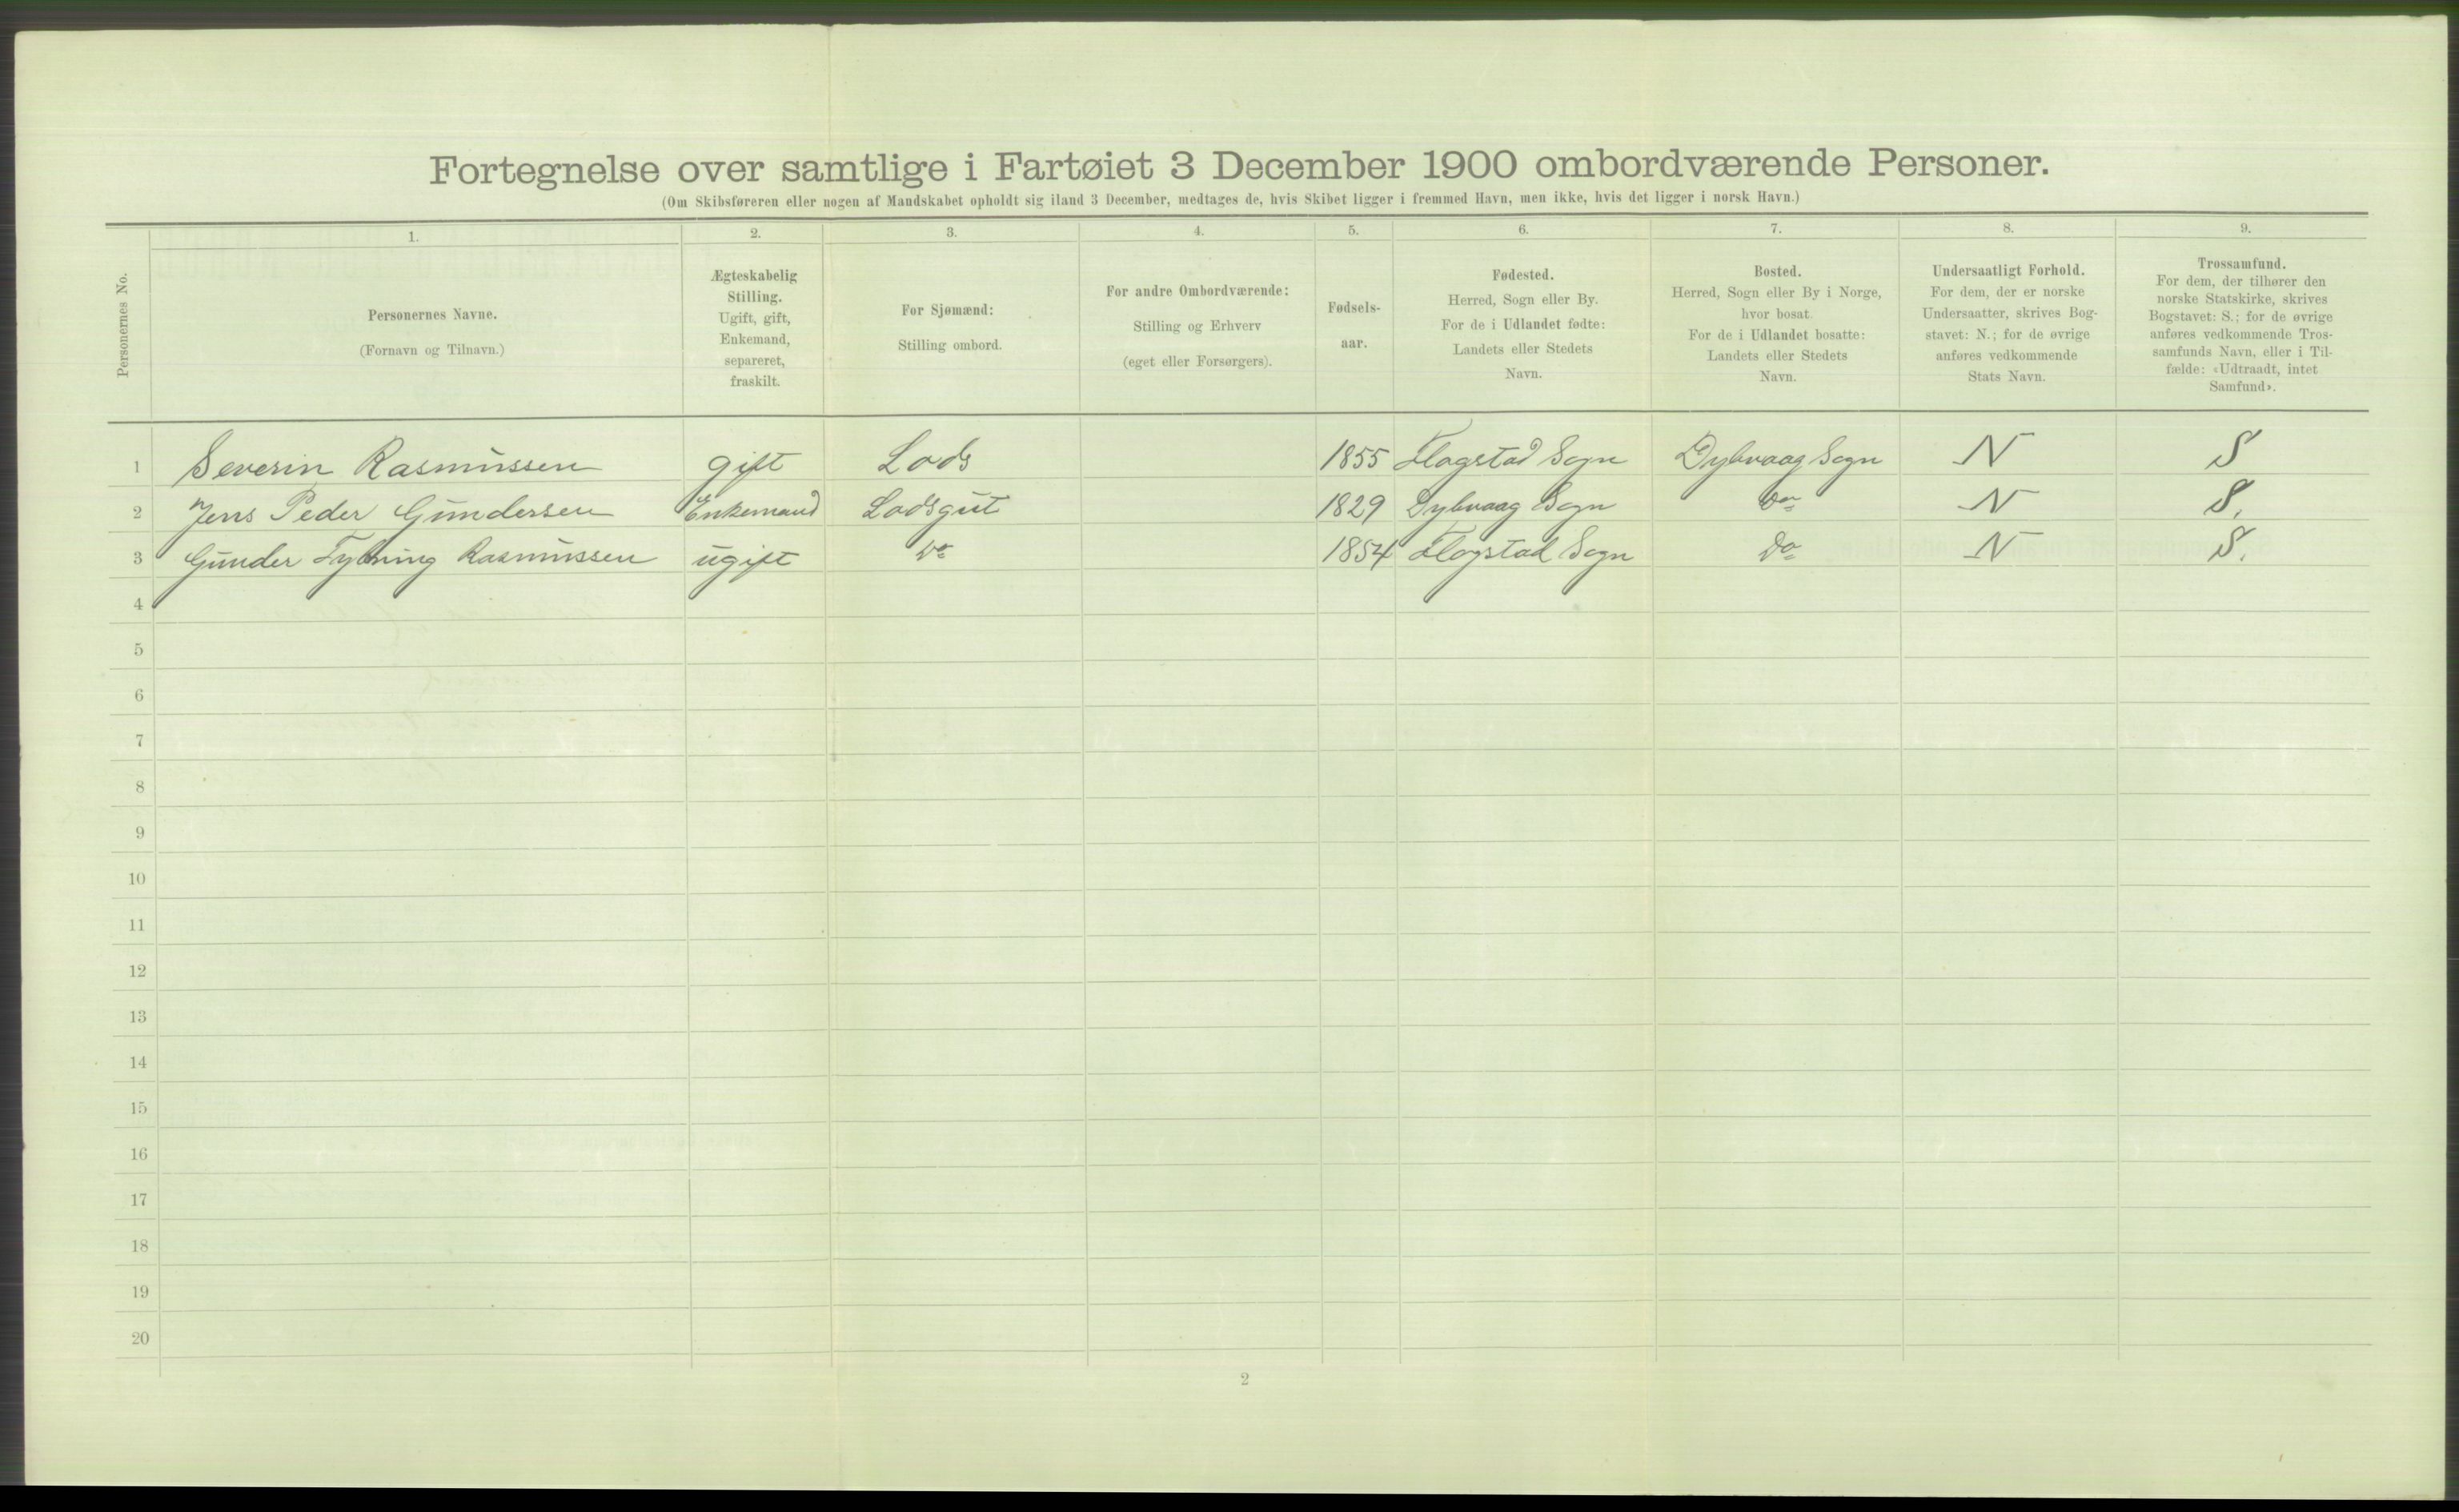 Fortegnelse over samtlige i Fartøiet 3 December 1900 ombordværende Personer.
(Om Skibsføreren eller nogen af Mandskabet opholdt sig iland 3 December, medtages de, hvis Skibet ligger i fremmed Havn, men ikke, hvis det ligger i norsk Havn.)
Personernes No.
1.
Personernes Navne.
(Fornavn og Tilnavn.)
2.
Ægteskabelig
Stilling.
Ugift, gift,
Enkemand,
separeret,
fraskilt.
3.
For Sjømænd:
Stilling ombord.
4.
For andre Ombordværende:
Stilling og Erhverv
(eget eller Forsørgers).
5.
Fødsels-
aar.
6.
Fødested.
Herred, Sogn eller By.
For de i Udlandet fødte:
Landets eller Stedets
Navn.
7.
Bosted.
Herred, Sogn eller By i Norge,
hvor bosat.
For de i Udlandet bosatte:
Landets eller Stedets
Navn.
8.
Undersaatligt Forhold.
For dem, der er norske
Undersaatter, skrives Bog-
stavet: N.; for de øvrige
anføres vedkommende
Stats Navn.
9.
Trossamfund.
For dem, der tilhører den
norske Statskirke, skrives
Bogstavet: S.; for de øvrige
anføres vedkommende Tros-
samfunds Navn, eller i Til-
fælde: «Udtraadt, intet
Samfund».
1 Severin Rasmussen gift Lods 1855 Flagstad Sogn Dybvaag Sogn N S
2 Jens Peder Gundersen Enkemand Lodsgut 1829 Dybvaag Sogn Do N S.
3 Gunder Rasmussen ugift Do 1854 Flagstad Sogn Do N S.
4
5
6
7
8
9
10
11
12
13
14
15
16
17
18
19
20
2